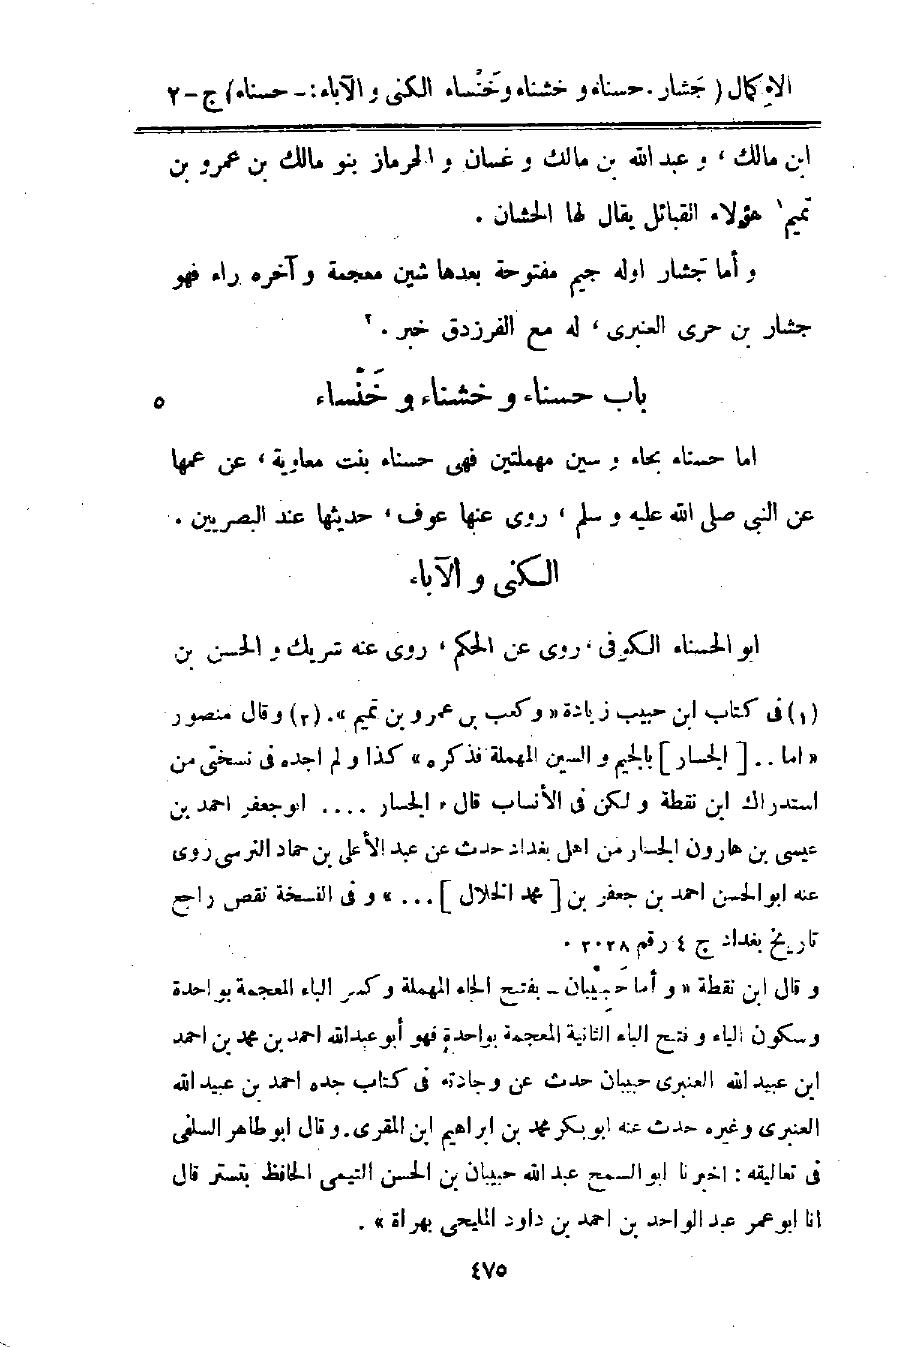 الإكمال ( جَشار . حسناء و خشناء و خَنْساء الكنى و الآباء : - حسناء ) ج - ٢
ابن مالك ، و عبد الله بن مالك و غسان و الحرماز بنو مالك بن عمرو بن
تميم ١ هؤلاء القبائل يقال لها الخشان .
و أما جَشار اوله جيم مفتوحة بعدها شين معجمة و آخره راء فهو
جشار بن حرى العنبرى ، له مع الفرزدق خبر . ٢
باب حسناء و خشناء و خَنْساء ٥
اما حسناء بحاء و سين مهملتين فهى حسناء بنت معاوية ، عن عمها
عن النبى صلى الله عليه و سلم ، روى عنها عوف ، حديثها عند البصريين .
الكنى و الآباء
ابو الحسناء الكوفى ، روى عن الحكم ، روى عنه شريك و الحسن بن
(١) فى كتاب ابن حبيب زيادة « و كعب بن عمرو بن تميم » . (٢) و قال منصور
« اما . . [ الجسار ] بالجيم و السين المهملة فذكره » كذا و لم اجده فى نسختى من
استدراك ابن نقطة و لكن فى الأنساب قال « الجسار . . . . ابو جعفر احمد بن
عيسى بن هارون الجسار من اهل بغداد حدث عن عبد الأعلى بن حماد النرسى روى
عنه ابو الحسن احمد بن جعفر بن [ محمد الخلال ] . . . » و فى النسخة نقص راجع
تاريخ بغداد ج ٤ رقم ٢٠٢٨ .
و قال ابن نقطة « و أما حَبِيْبان - بفتح الحاء المهملة و كسر الباء المعجمة بواحدة
و سكون الياء و فتح الباء الثانية المعجمة بواحدة فهو أبو عبد الله احمد بن محمد بن احمد
ابن عبيد الله العنبرى حبيبان حدث عن و جادته فى كتاب جده احمد بن عبيد الله
العنبرى و غيره حدث عنه ابو بكر محمد بن ابراهيم ابن المقرى . و قال ابو طاهر السلفى
فى تعاليقه : اخبرنا ابو السمح عبد الله حبيبان بن الحسن التيمى الحافظ بتستر قال
انا ابو عمر عبد الواحد بن احمد بن داود المليحى بهراة » .
٤٧٥